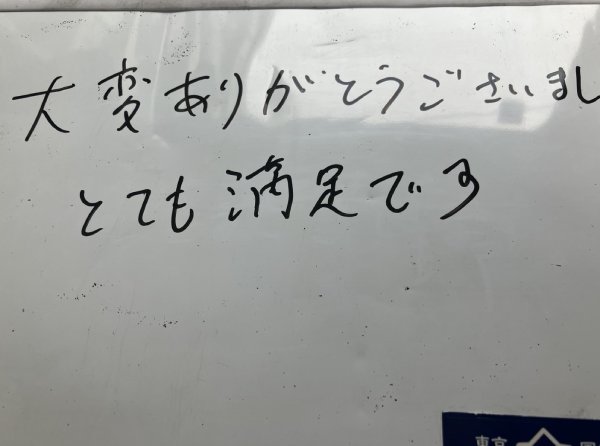 大変ありがとうございまし
とても満足です
東京